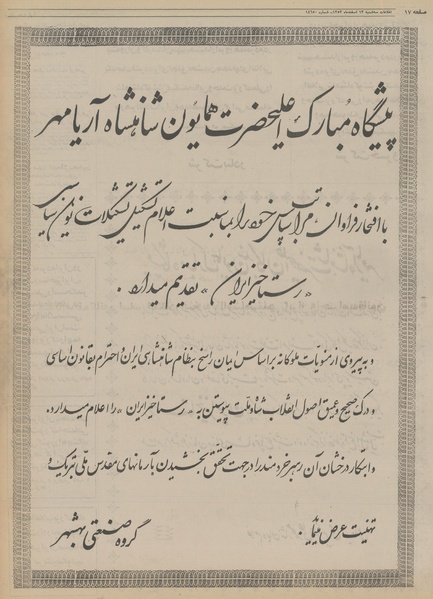 صفحه ۱۷
پیشگاه مبارک اعلیحضرت همایون شاهنشاه آریامهر
با افتخار فراوان مراتب سپاس خود را بمناسبت اعلام تشکیل تشکیلات نوین سیاسی
«رستاخیز ایران» تقدیم میدارد.
و به پیروی از منویات ملوکانه بر اساس ایمان راسخ بنظام شاهنشاهی ایران و احترام بقانون اساسی
و درک صحیح و عمیق اصول انقلاب شاه و ملت پیوستن به «رستاخیز ایران» را اعلام میدارد.
و ابتکار درخشان آن رهبر خردمند را در جهت تحقق بخشیدن بآرمانهای مقدس ملی تبریک و
تهنیت عرض مینماید.
گروه صنعتی بهشهر